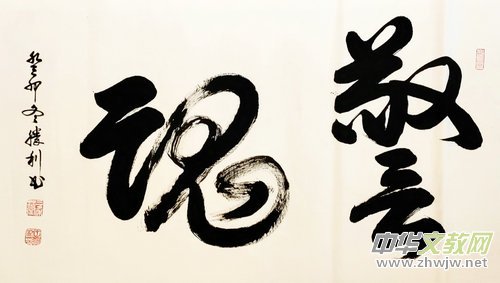 警魂
癸卯冬勝利书
中华文教网
www.zhwjw.net